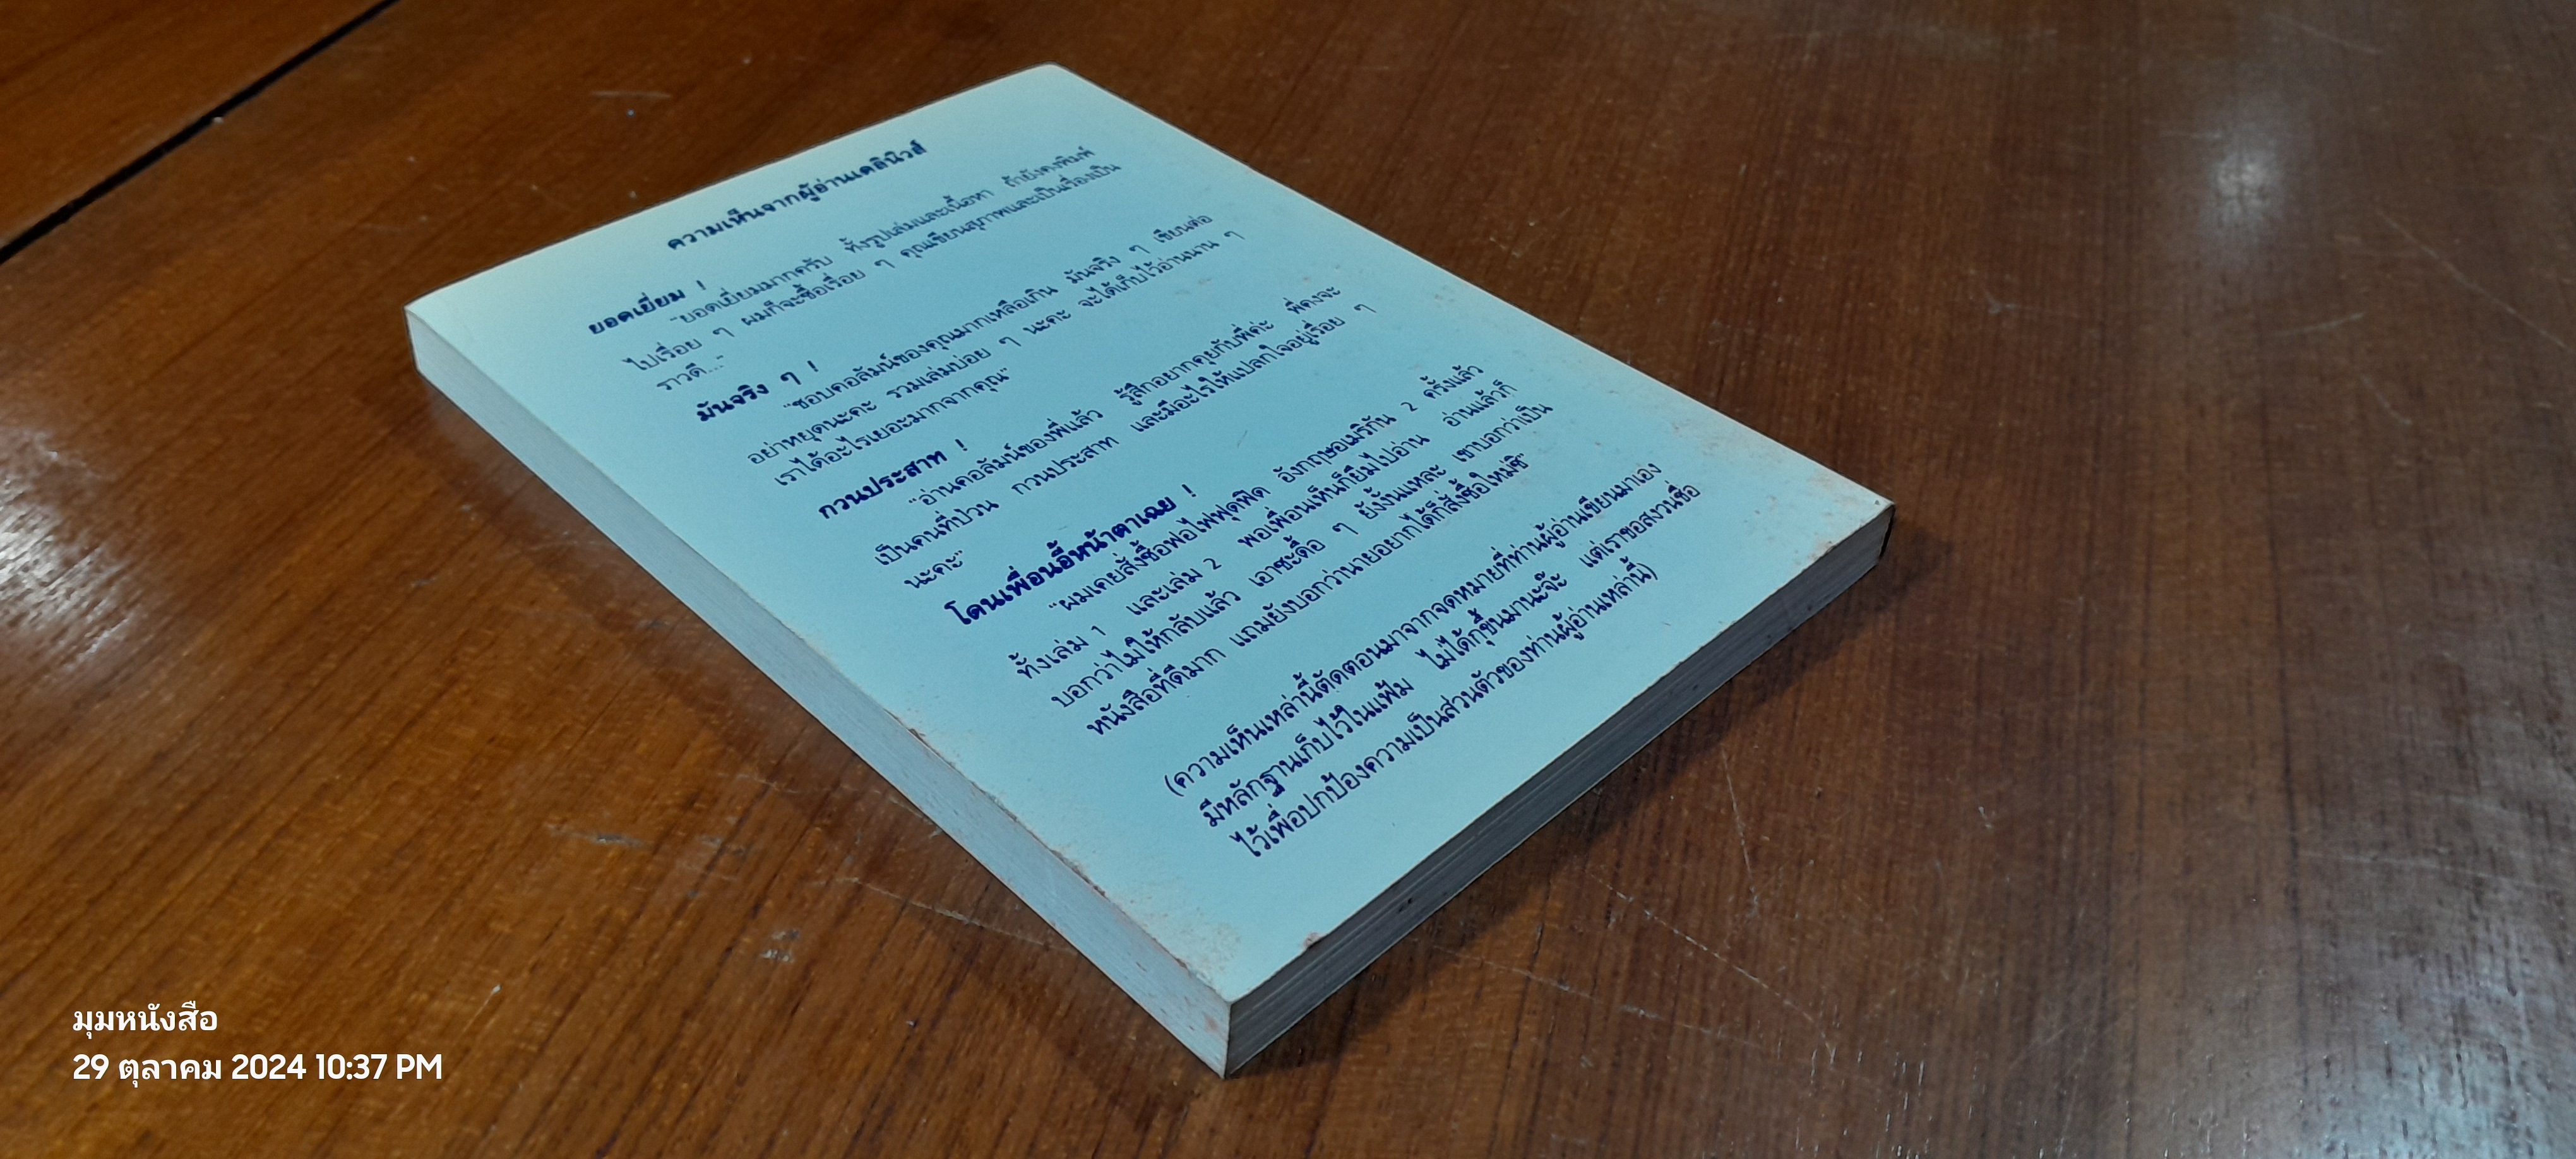 ความเห็นจากผู้อ่านเดลินิวส์
ยอดเยี่ยม !
"ยอดเยี่ยมมากครับ ทั้งรูปเล่มและเนื้อหา ถ้ายังคงพิมพ์
ไปเรื่อย ๆ ผมก็จะซื้อเรื่อย ๆ คุณเขียนสุภาพและเป็นเรื่องเป็น
ราวดี..."
มันจริง ๆ !
"ชอบคอลัมน์ของคุณมากเหลือเกิน มันจริง ๆ เขียนต่อ
อย่าหยุดนะคะ รวมเล่มบ่อย ๆ นะคะ จะได้เก็บไว้อ่านนาน ๆ
เราได้อะไรเยอะมากจากคุณ"
กวนประสาท !
"อ่านคอลัมน์ของพี่แล้ว รู้สึกอยากคุยกับพี่ค่ะ พี่คงจะ
เป็นคนที่ป่วน กวนประสาท และมีอะไรให้แปลกใจอยู่เรื่อย ๆ
นะคะ"
โดนเพื่อนอี้หน้าตาเฉย !
"ผมเคยสั่งซื้อฟอไฟฟุดฟิด อังกฤษอเมริกัน 2 ครั้งแล้ว
ทั้งเล่ม 1 และเล่ม 2 พอเพื่อนเห็นก็ยืมไปอ่าน อ่านแล้วก็
บอกว่าไม่ให้กลับแล้ว เอาซะดื้อ ๆ ยังงั้นแหละ เขาบอกว่าเป็น
หนังสือที่ดีมาก แถมยังบอกว่านายอยากได้ก็สั่งซื้อใหม่ซิ"
(ความเห็นเหล่านี้ตัดตอนมาจากจดหมายที่ท่านผู้อ่านเขียนมาเอง
มีหลักฐานเก็บไว้ในแฟ้ม ไม่ได้กุขึ้นมานะจ๊ะ แต่เราขอสงวนชื่อ
ไว้เพื่อปกป้องความเป็นส่วนตัวของท่านผู้อ่านเหล่านี้)
มุมหนังสือ
29 ตุลาคม 2024 10:37 PM